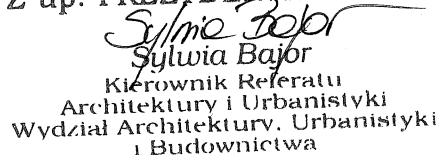 Z up. PREZYDENTA
Sylwia Bajor
Sylwia Bajor
Kierownik Referatu
Architektury i Urbanistyki
Wydział Architektury, Urbanistyki
i Budownictwa